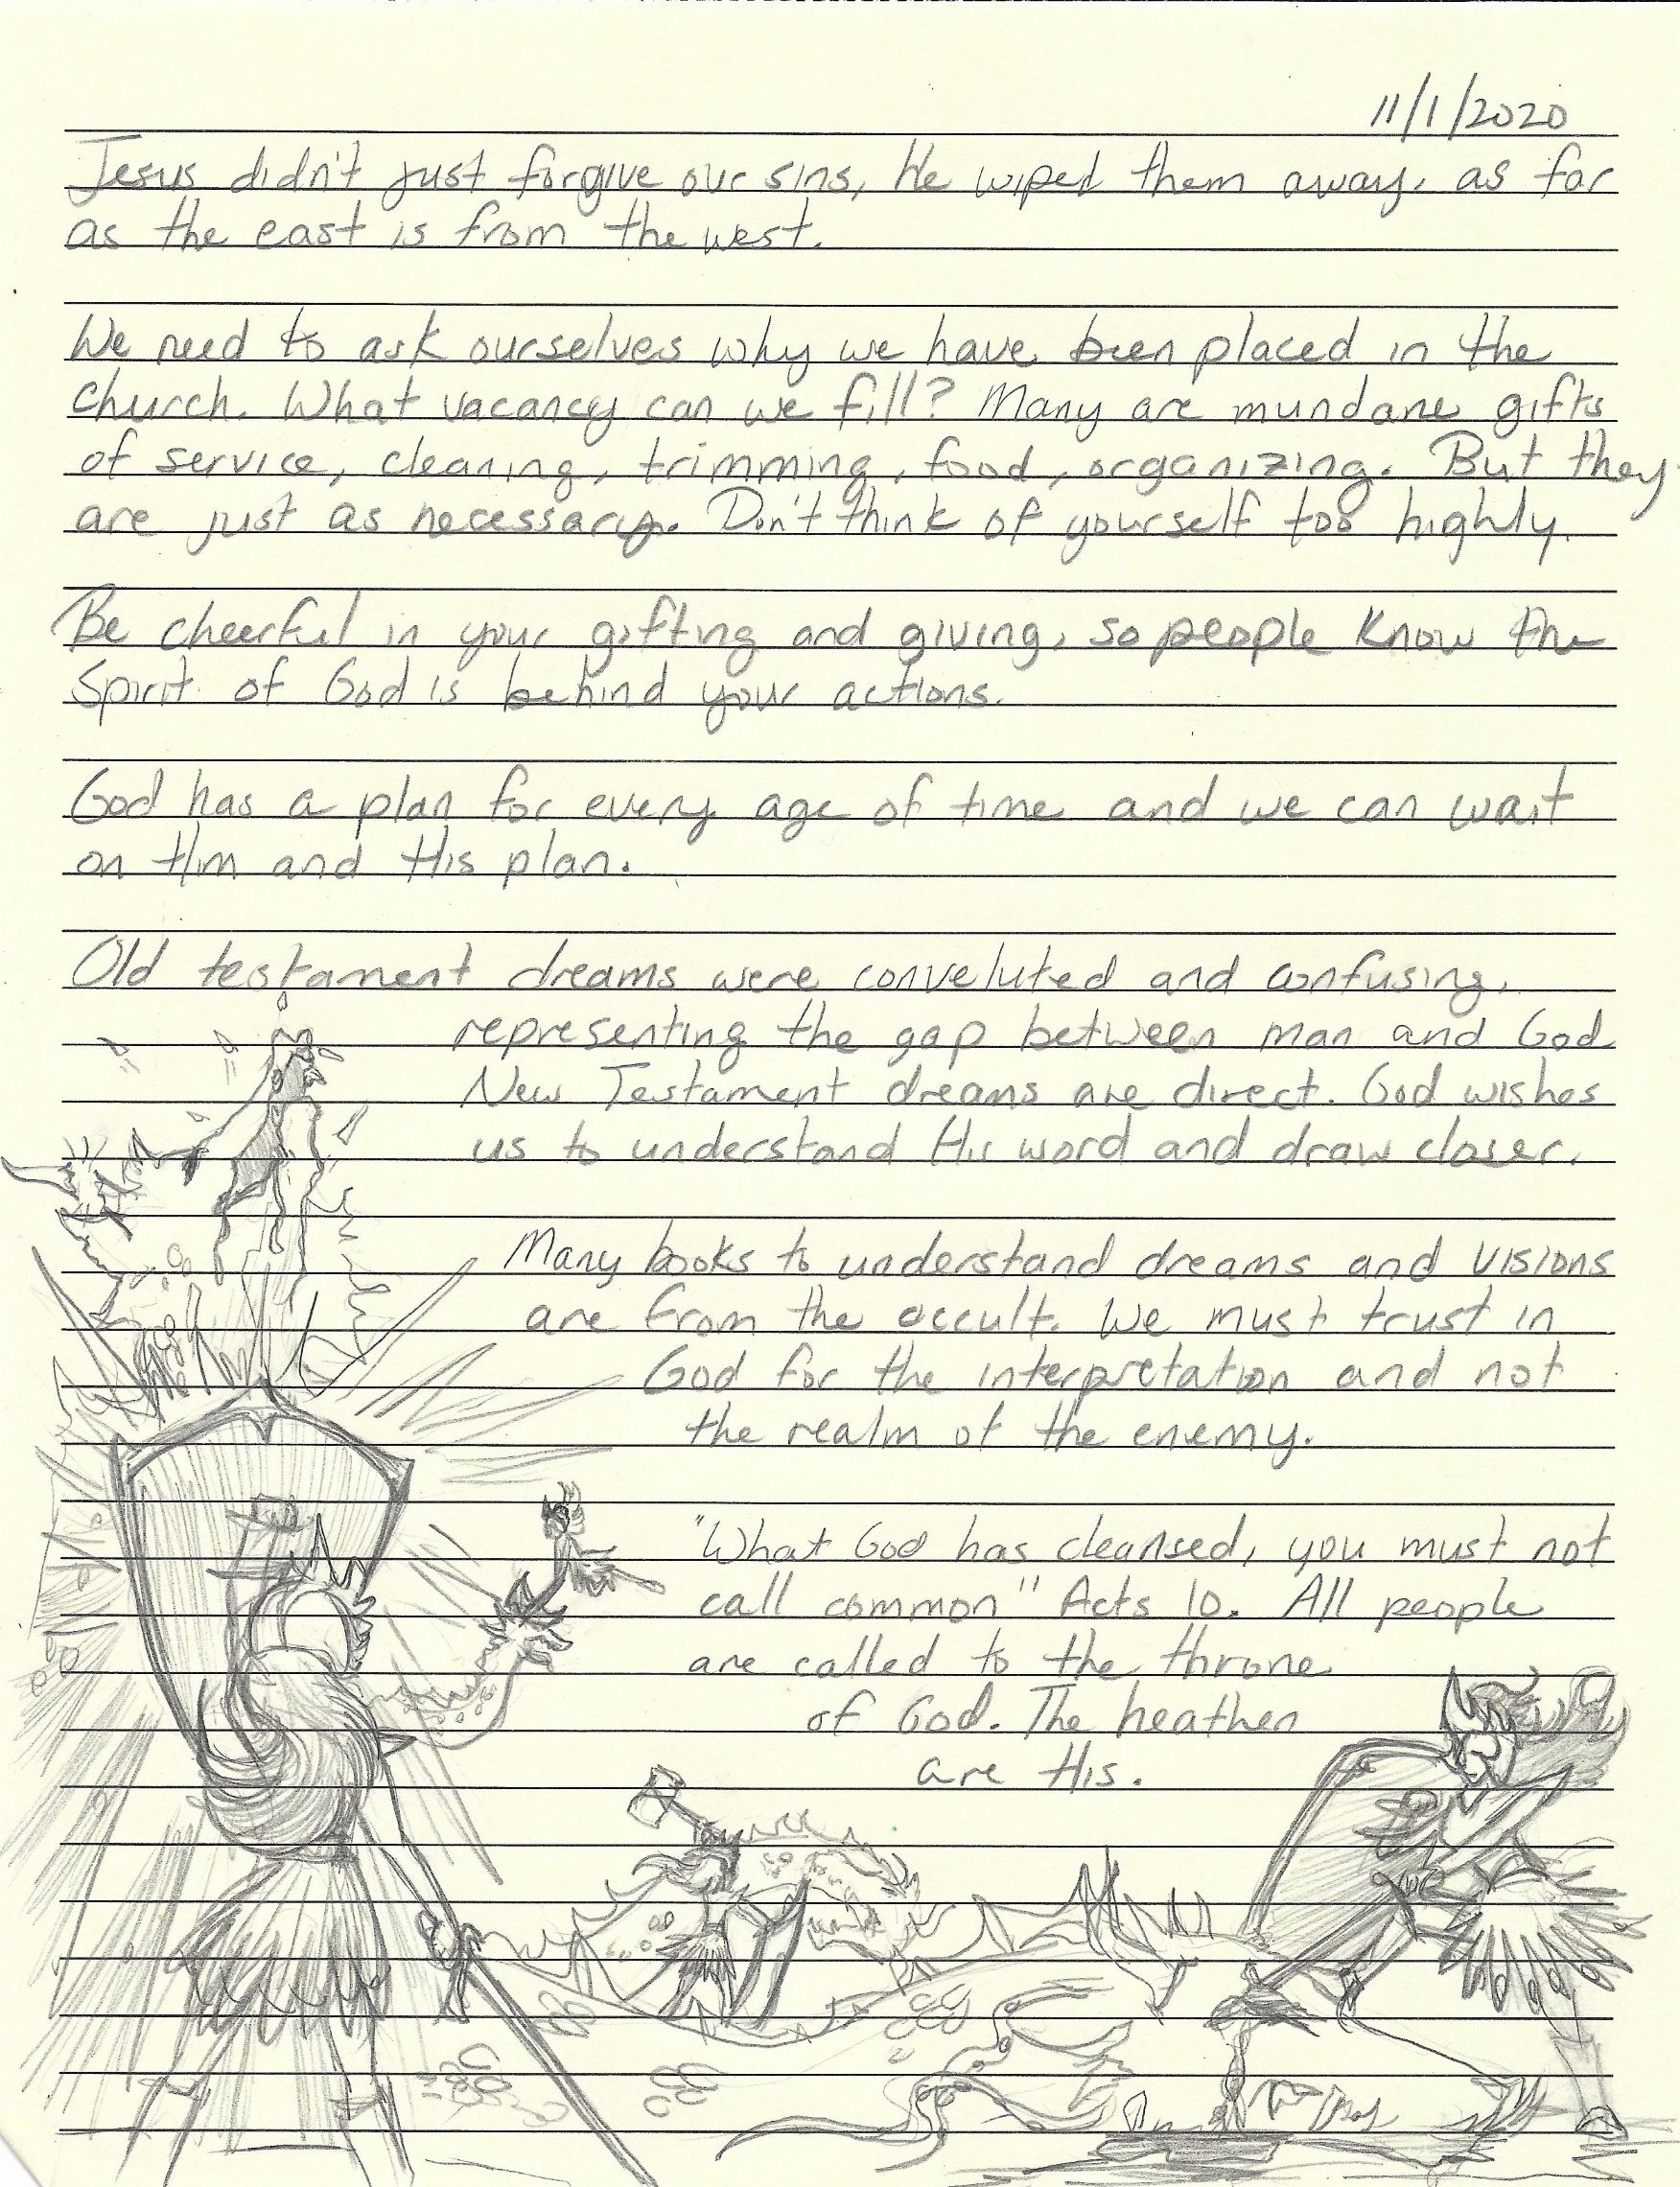 11/1/2020
Jesus didn't just forgive our sins, He wiped them away, as far
as the east is from the west.
We need to ask ourselves why we have been placed in the
church. What vacancy can we fill? Many are mundane gifts
of service, cleaning, trimming, food, organizing. But they
are just as necessary. Don't think of yourself too highly.
Be cheerful in your gifting and giving, so people know the
Spirit of God is behind your actions.
God has a plan for every age of time and we can wait
on Him and His plan.
Old testament dreams were conveluted and confusing,
representing the gap between man and God
New Testament dreams are direct. God wishes
us to understand His word and draw closer.
Many books to understand dreams and visions
are from the occult. We must trust in
God for the interpretation and not
the realm of the enemy.
"What God has cleansed, you must not
call common" Acts 10. All people
are called to the throne
of God. The heathen
are His.